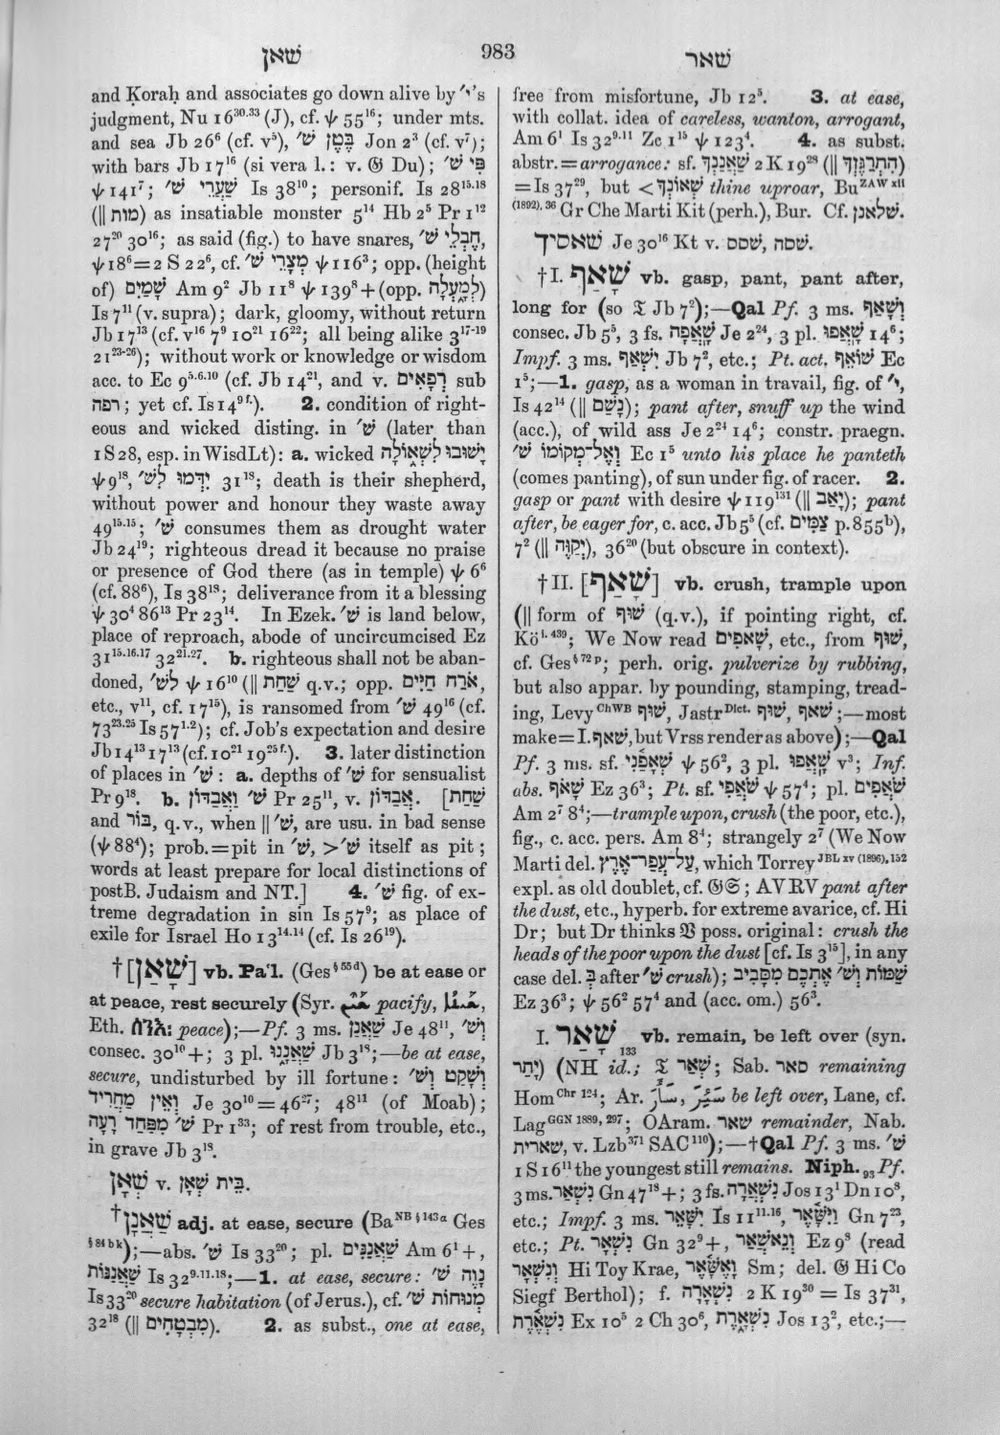 שׁאן
983
שׁאר
and Ḳoraḥ and associates go down alive by י׳'s
judgment, Nu 16³⁰·³³ (J), cf. ψ 55¹⁶; under mts.
and sea Jb 26⁶ (cf. v⁵), בֶּטֶן שׁ׳ Jon 2³ (cf. v⁷);
with bars Jb 17¹⁶ (si vera l.: v. 𝔊 Du); פִּי שׁ׳
ψ 141⁷; שַׁעֲרֵי שׁ׳ Is 38¹⁰; personif. Is 28¹⁵·¹⁸
(|| מות) as insatiable monster 5¹⁴ Hb 2⁵ Pr 1¹²
27²⁰ 30¹⁶; as said (fig.) to have snares, חֶבְלֵי שׁ׳,
ψ 18⁶ = 2 S 22⁶, cf. מְצָרֵי שׁ׳ ψ 116³; opp. (height
of) שָׁמַיִם Am 9² Jb 11⁸ ψ 139⁸ + (opp. לְמָ֑עְלָה)
Is 7¹¹ (v. supra); dark, gloomy, without return
Jb 17¹³ (cf. v¹⁶ 7⁹ 10²¹ 16²²; all being alike 3¹⁷⁻¹⁹
21²³⁻²⁶); without work or knowledge or wisdom
acc. to Ec 9⁵·⁶·¹⁰ (cf. Jb 14²¹, and v. רְפָאִים sub
רפה; yet cf. Is 14⁹ᶠ·). 2. condition of right-
eous and wicked disting. in שׁ׳ (later than
1 S 28, esp. in WisdLt): a. wicked יָשׁוּבוּ לִשְׁאוֹלָה
ψ 9¹⁸, יִדְּמוּ לִשׁ׳ 31¹⁸; death is their shepherd,
without power and honour they waste away
49¹⁵·¹⁵; שׁ׳ consumes them as drought water
Jb 24¹⁹; righteous dread it because no praise
or presence of God there (as in temple) ψ 6⁶
(cf. 88⁶), Is 38¹⁸; deliverance from it a blessing
ψ 30⁴ 86¹³ Pr 23¹⁴. In Ezek. שׁ׳ is land below,
place of reproach, abode of uncircumcised Ez
31¹⁵·¹⁶·¹⁷ 32²¹·²⁷. b. righteous shall not be aban-
doned, לשׁ׳ ψ 16¹⁰ (|| שַׁחַת q.v.; opp. אֹרַח חַיִּים,
etc., v¹¹, cf. 17¹⁵), is ransomed from שׁ׳ 49¹⁶ (cf.
73²³·²⁵ Is 57¹·²); cf. Job's expectation and desire
Jb 14¹³ 17¹³ (cf. 10²¹ 19²⁵ᶠ·). 3. later distinction
of places in שׁ׳: a. depths of שׁ׳ for sensualist
Pr 9¹⁸. b. שׁ׳ וַאֲבַדּוֹן Pr 25¹¹, v. אֲבַדּוֹן. [שַׁחַת
and בּוֹר, q.v., when || שׁ׳, are usu. in bad sense
(ψ 88⁴); prob. = pit in שׁ׳, > שׁ׳ itself as pit;
words at least prepare for local distinctions of
postB. Judaism and NT.] 4. שׁ׳ fig. of ex-
treme degradation in sin Is 57⁹; as place of
exile for Israel Ho 13¹⁴·¹⁴ (cf. Is 26¹⁹).
†[שָׁאַן] vb. Pa'l. (Ges§⁵⁵ᵈ) be at ease or
at peace, rest securely (Syr. pacify,
Eth. peace);—Pf. 3 ms. שַׁאֲנַן Je 48¹¹, וְשׁ׳
consec. 30¹⁰ +; 3 pl. שַׁאֲנָ֑נוּ Jb 3¹⁸;—be at ease,
secure, undisturbed by ill fortune: וְשָׁקַט וְשׁ׳
וְאֵין מַחֲרִיד Je 30¹⁰ = 46²⁷; 48¹¹ (of Moab);
שׁ׳ מִפַּחַד רָעָה Pr 1³³; of rest from trouble, etc.,
in grave Jb 3¹⁸.
שְׁאָן v. בֵּית שְׁאָן.
†שַׁאֲנָן adj. at ease, secure (Baᴺᴮ§¹⁴³ᵃ Ges
§⁸⁴ᵇᵏ);—abs. שׁ׳ Is 33²⁰; pl. שַׁאֲנַנִּים Am 6¹ +,
שַׁאֲנַנּוֹת Is 32⁹·¹¹·¹⁸;—1. at ease, secure: נָוֶה שׁ׳
Is 33²⁰ secure habitation (of Jerus.), cf. מְנוּחוֹת שׁ׳
32¹⁸ (|| מִבְטָחִים). 2. as subst., one at ease,
free from misfortune, Jb 12⁵. 3. at ease,
with collat. idea of careless, wanton, arrogant,
Am 6¹ Is 32⁹·¹¹ Zc 1¹⁵ ψ 123⁴. 4. as subst.
abstr. = arrogance: sf. שַׁאֲנַנְךָ 2 K 19²⁸ (|| הִתְרַגֶּזְךָ)
= Is 37²⁹, but < שְׁאוֹנְךָ thine uproar, Buᶻᴬᵂ ˣⁱⁱ
(1892). 36 Gr Che Marti Kit (perh.), Bur. Cf. שׁלאנן.
שׁאסיך Je 30¹⁶ Kt v. שׁסה, שׁסס.
†I. שָׁאַף vb. gasp, pant, pant after,
long for (so 𝔗 Jb 7²);—Qal Pf. 3 ms. וְשָׁאַף
consec. Jb 5⁵, 3 fs. שָׁאֲפָה Je 2²⁴, 3 pl. שָׁאֲפוּ 14⁶;
Impf. 3 ms. יִשְׁאַף Jb 7², etc.; Pt. act. שׁוֹאֵף Ec
1⁵;—1. gasp, as a woman in travail, fig. of י׳,
Is 42¹⁴ (|| נָשַׁם); pant after, snuff up the wind
(acc.), of wild ass Je 2²⁴ 14⁶; constr. praegn.
וְאֶל־מְקוֹמוֹ שׁ׳ Ec 1⁵ unto his place he panteth
(comes panting), of sun under fig. of racer. 2.
gasp or pant with desire ψ 119¹³¹ (|| יָאַב); pant
after, be eager for, c. acc. Jb 5⁵ (cf. צַמִּים p. 855ᵇ),
7² (|| יְקַוֶּה), 36²⁰ (but obscure in context).
†II. [שָׁאַף] vb. crush, trample upon
(|| form of שׁוּף (q.v.), if pointing right, cf.
Köⁱ·⁴³⁹; We Now read שָׁאפִים, etc., from שׁוּף,
cf. Ges§⁷²ᵖ; perh. orig. pulverize by rubbing,
but also appar. by pounding, stamping, tread-
ing, Levyᶜʰᵂᴮ שׁוּף, Jastrᴰⁱᶜᵗ· שׁוּף, שׁאף;—most
make = I. שׁאף, but Vrss render as above);—Qal
Pf. 3 ms. sf. שְׁאָפַ֫נִי ψ 56², 3 pl. שָׁאֲפוּ v³; Inf.
abs. שָׁאֹף Ez 36³; Pt. sf. שֹׁאֲפִי ψ 57⁴; pl. שֹׁאֲפִים
Am 2⁷ 8⁴;—trample upon, crush (the poor, etc.),
fig., c. acc. pers. Am 8⁴; strangely 2⁷ (We Now
Marti del. עַל־עֲפַר־אֶרֶץ, which Torreyᴶᴮᴸ ˣᵛ (1896), 152
expl. as old doublet, cf. 𝔊𝔖; AV RV pant after
the dust, etc., hyperb. for extreme avarice, cf. Hi
Dr; but Dr thinks 𝔙 poss. original: crush the
heads of the poor upon the dust [cf. Is 3¹⁵], in any
case del. בְּ after שׁ׳ crush); שַׁמּוֹת וְשׁ׳ אֶתְכֶם מִסָּבִיב
Ez 36³; ψ 56² 57⁴ and (acc. om.) 56³.
I. שָׁאַר vb. remain, be left over (syn.
133
יָתַר) (NH id.; 𝔗 שְׁאַר; Sab. סאר remaining
Homᶜʰʳ ¹²⁴; Ar. سَأَرَ, سَئِرَ be left over, Lane, cf.
Lagᴳᴳᴺ ¹⁸⁸⁹, ²⁹⁷; OAram. שאר remainder, Nab.
שארית, v. Lzb³⁷¹ SAC¹¹⁰);—†Qal Pf. 3 ms. שׁ׳
1 S 16¹¹ the youngest still remains. Niph.₉₃ Pf.
3 ms. נִשְׁאַר Gn 47¹⁸ +; 3 fs. נִשְׁאֲרָה Jos 13¹ Dn 10⁸,
etc.; Impf. 3 ms. יִשָּׁאֵר Is 11¹¹·¹⁶, וַיִּשָּׁ֫אֶר Gn 7²³,
etc.; Pt. נִשְׁאָר Gn 32⁹ +, וְנֵאשְׁאַר Ez 9⁸ (read
וְנִשְׁאָר Hi Toy Krae, וָאֶשָּׁאֵר Sm; del. 𝔊 Hi Co
Siegf Berthol); f. נִשְׁאָרָה 2 K 19³⁰ = Is 37³¹,
נִשְׁאֶ֫רֶת Ex 10⁵ 2 Ch 30⁶, נִשְׁאָ֑רֶת Jos 13², etc.;—